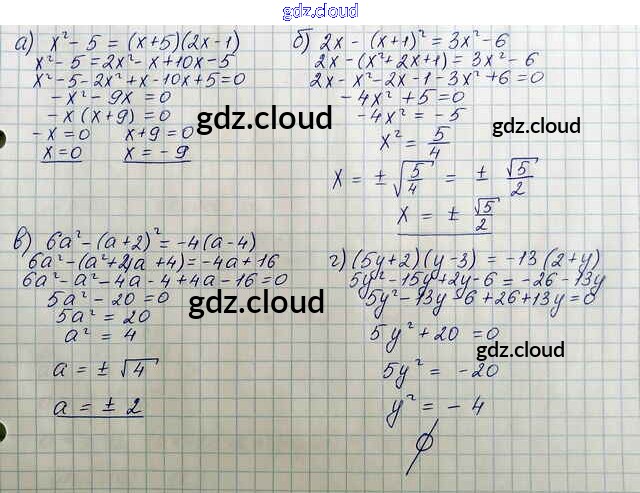 gdz.cloud
а) x² - 5 = (x+5)(2x-1)
x² - 5 = 2x² - x + 10x - 5
x² - 5 - 2x² + x - 10x + 5 = 0
- x² - 9x = 0
- x (x + 9) = 0
- x = 0 x + 9 = 0
x = 0 x = - 9
gdz.cloud
б) 2x - (x+1)² = 3x² - 6
2x - (x² + 2x + 1) = 3x² - 6
2x - x² - 2x - 1 - 3x² + 6 = 0
- 4x² + 5 = 0
- 4x² = - 5
x² = 5/4
gdz.cloud
x = ± √5/4 = ± √5/2
x = ± √5/2
в) 6a² - (a+2)² = -4(a-4)
6a² - (a² + 2)a + 4) = -4a + 16
6a² - a² - 4a - 4 + 4a - 16 = 0
5a² - 20 = 0
5a² = 20
a² = 4
a = ± √4
a = ± 2
gdz.cloud
г) (5y+2)(y-3) = -13(2+y)
5y² - 15y + 2y - 6 = -26 - 13y
5y² - 13y - 6 + 26 + 13y = 0
5y² + 20 = 0
5y² = - 20
y² = - 4
∅
gdz.cloud